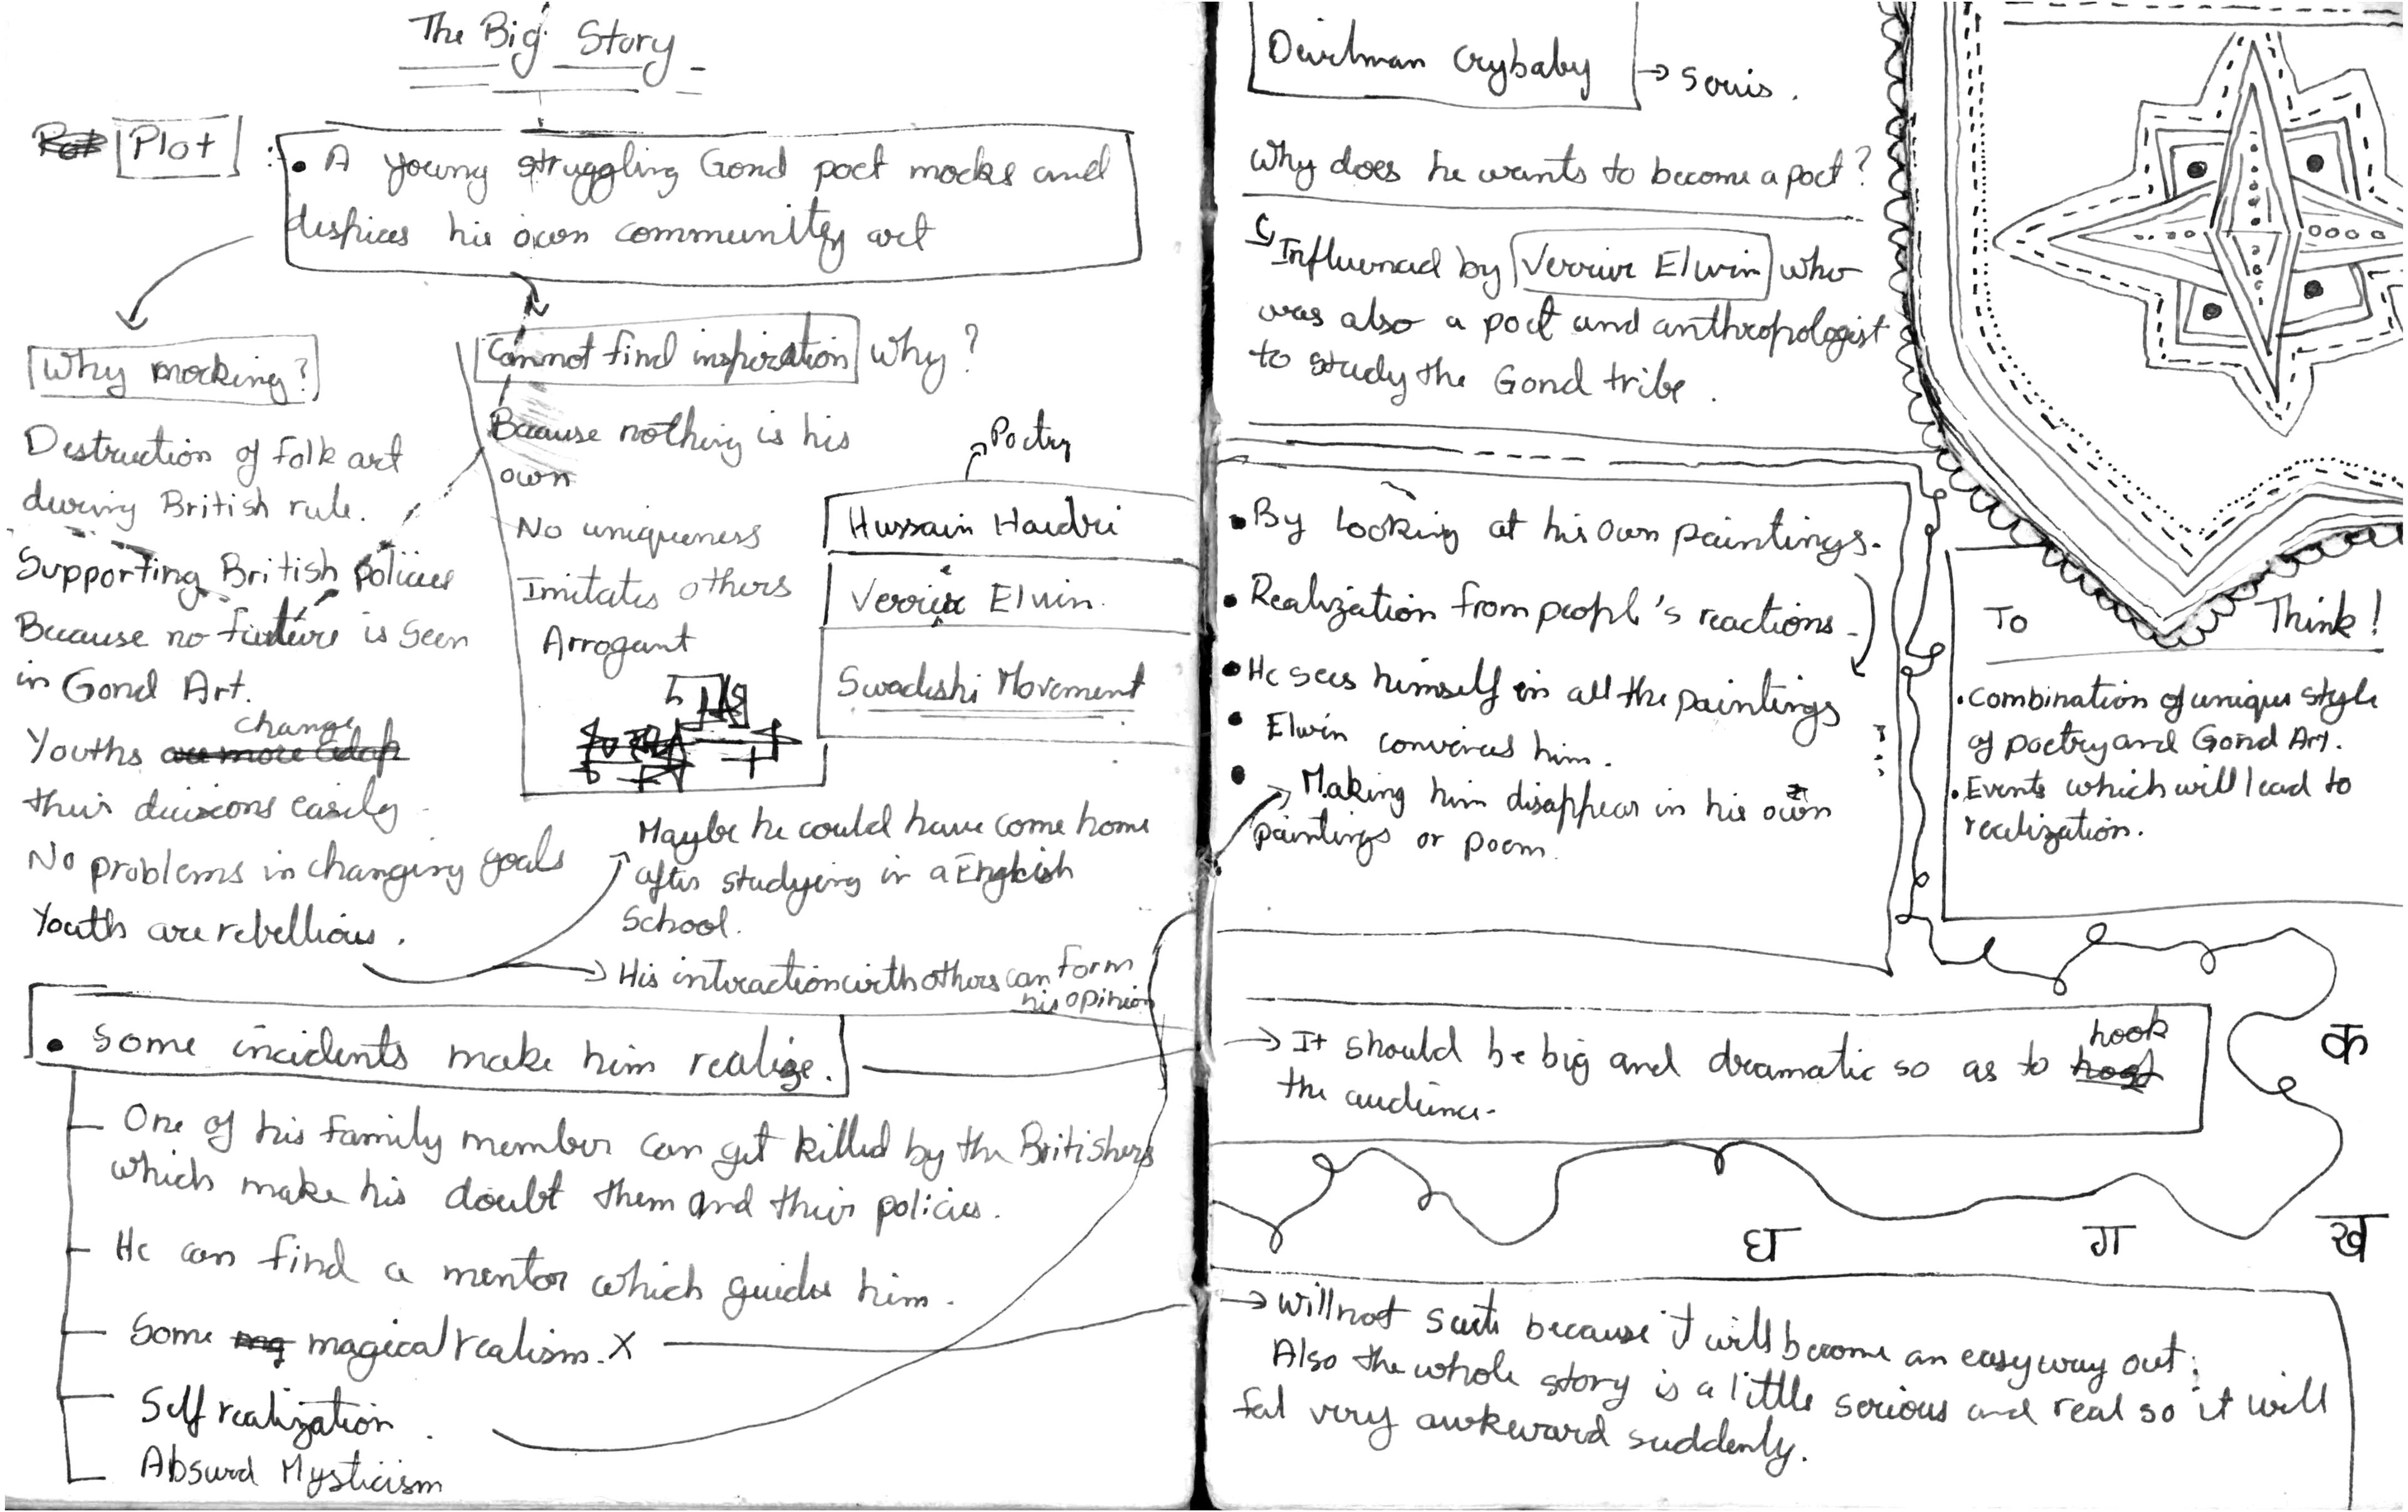 The Big Story
Plot
• A young struggling Gond poet mocks and
dispices his own community art
Why mocking?
Destruction of folk art
during British rule.
Supporting British policies
Because no future is seen
in Gond Art.
change
Youths are more
their divisions easily
No problems in changing goals
Youth are rebellious.
Cannot find inspiration why?
Because nothing is his
own
No uniqueness
Imitates others
Arrogant
Poetry
Hussain Haidri
Verrier Elwin.
Swadeshi Movement
Maybe he could have come home
after studying in a English
School.
His interaction with others can form
his opinion
• Some incidents make him realize.
One of his family member can get killed by the Britishers
which make his doubt them and their policies.
He can find a mentor which guides him.
Some magical realism. X
Self realization.
Absurd Mysticism
Devilman Crybaby → Series.
Why does he wants to become a poet?
Influenced by Verrier Elwin who
was also a poet and anthropologist
to study the Gond tribe.
• By looking at his own paintings.
• Realization from people's reactions
• He sees himself in all the paintings
• Elwin convinces him.
• Making him disappear in his own
paintings or poem.
To Think!
• Combination of unique style
of poetry and Gond Art.
• Events which will lead to
realization.
hook
→ It should be big and dramatic so as to
the audience.
क
ख
ग
घ
→ Will not suite because it will become an easy way out.
Also the whole story is a little serious and real so it will
feel very awkward suddenly.